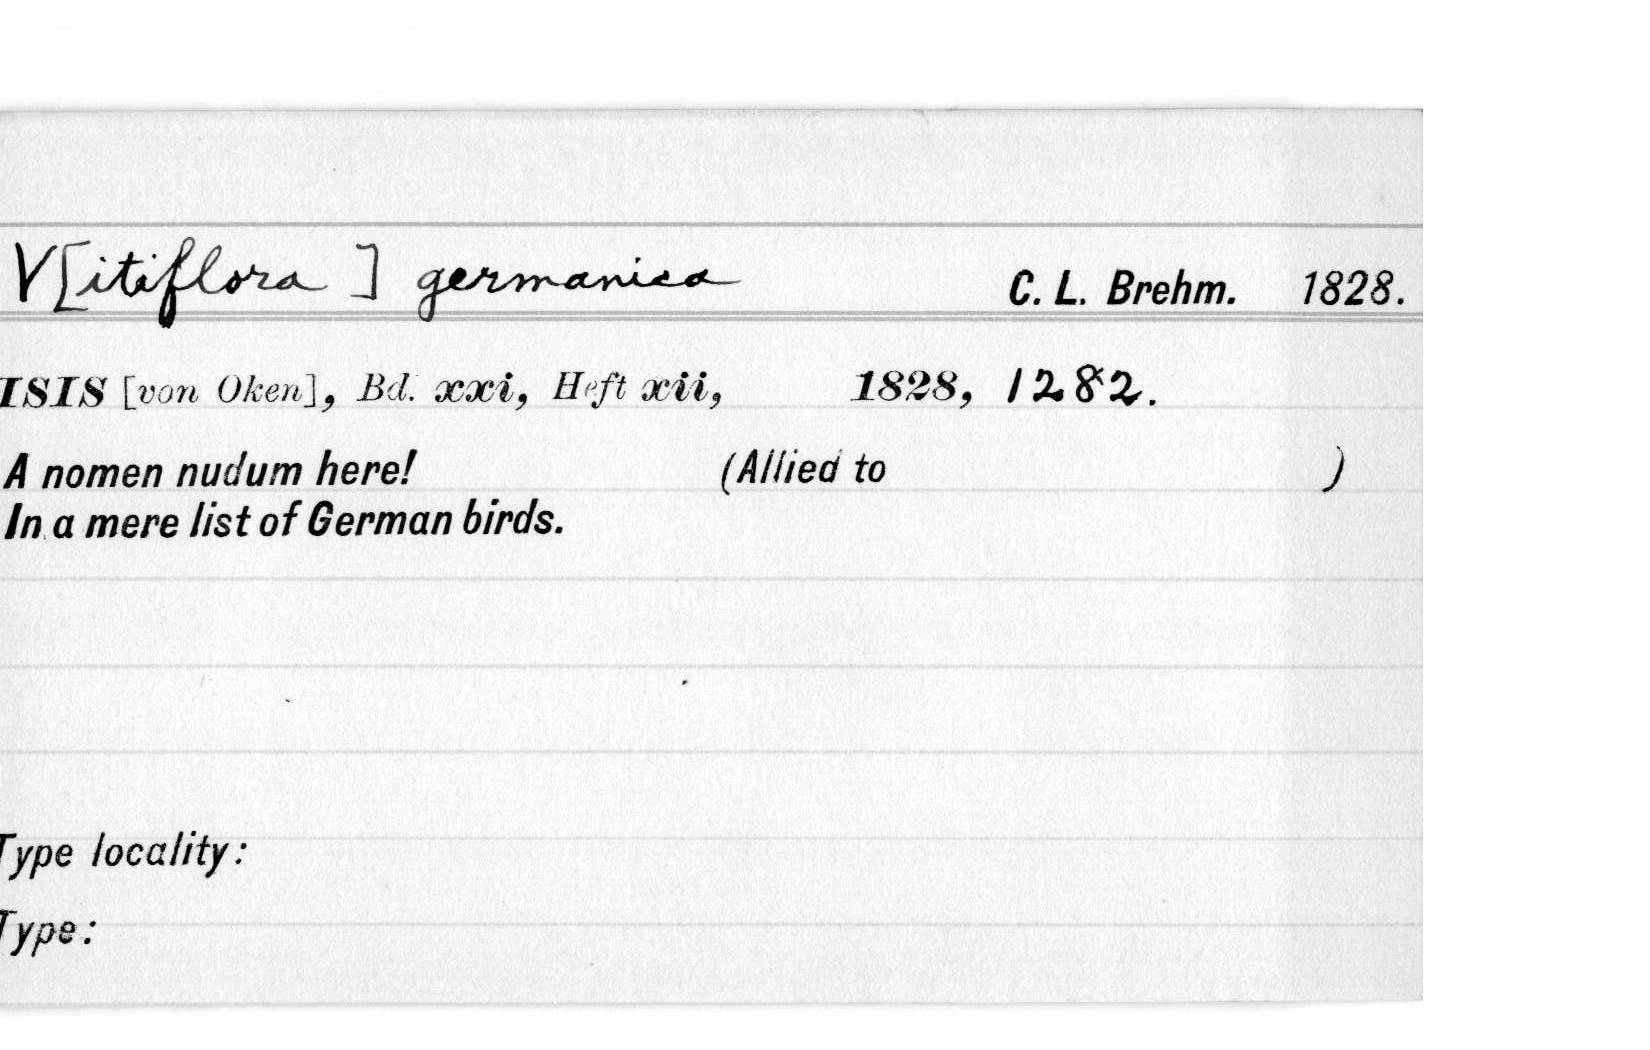 V[itiflora ] germanica C. L. Brehm. 1828.
ISIS [von Oken], Bd. xxi, Heft xii, 1828, 1282.
A nomen nudum here! (Allied to )
In a mere list of German birds.
Type locality:
Type: